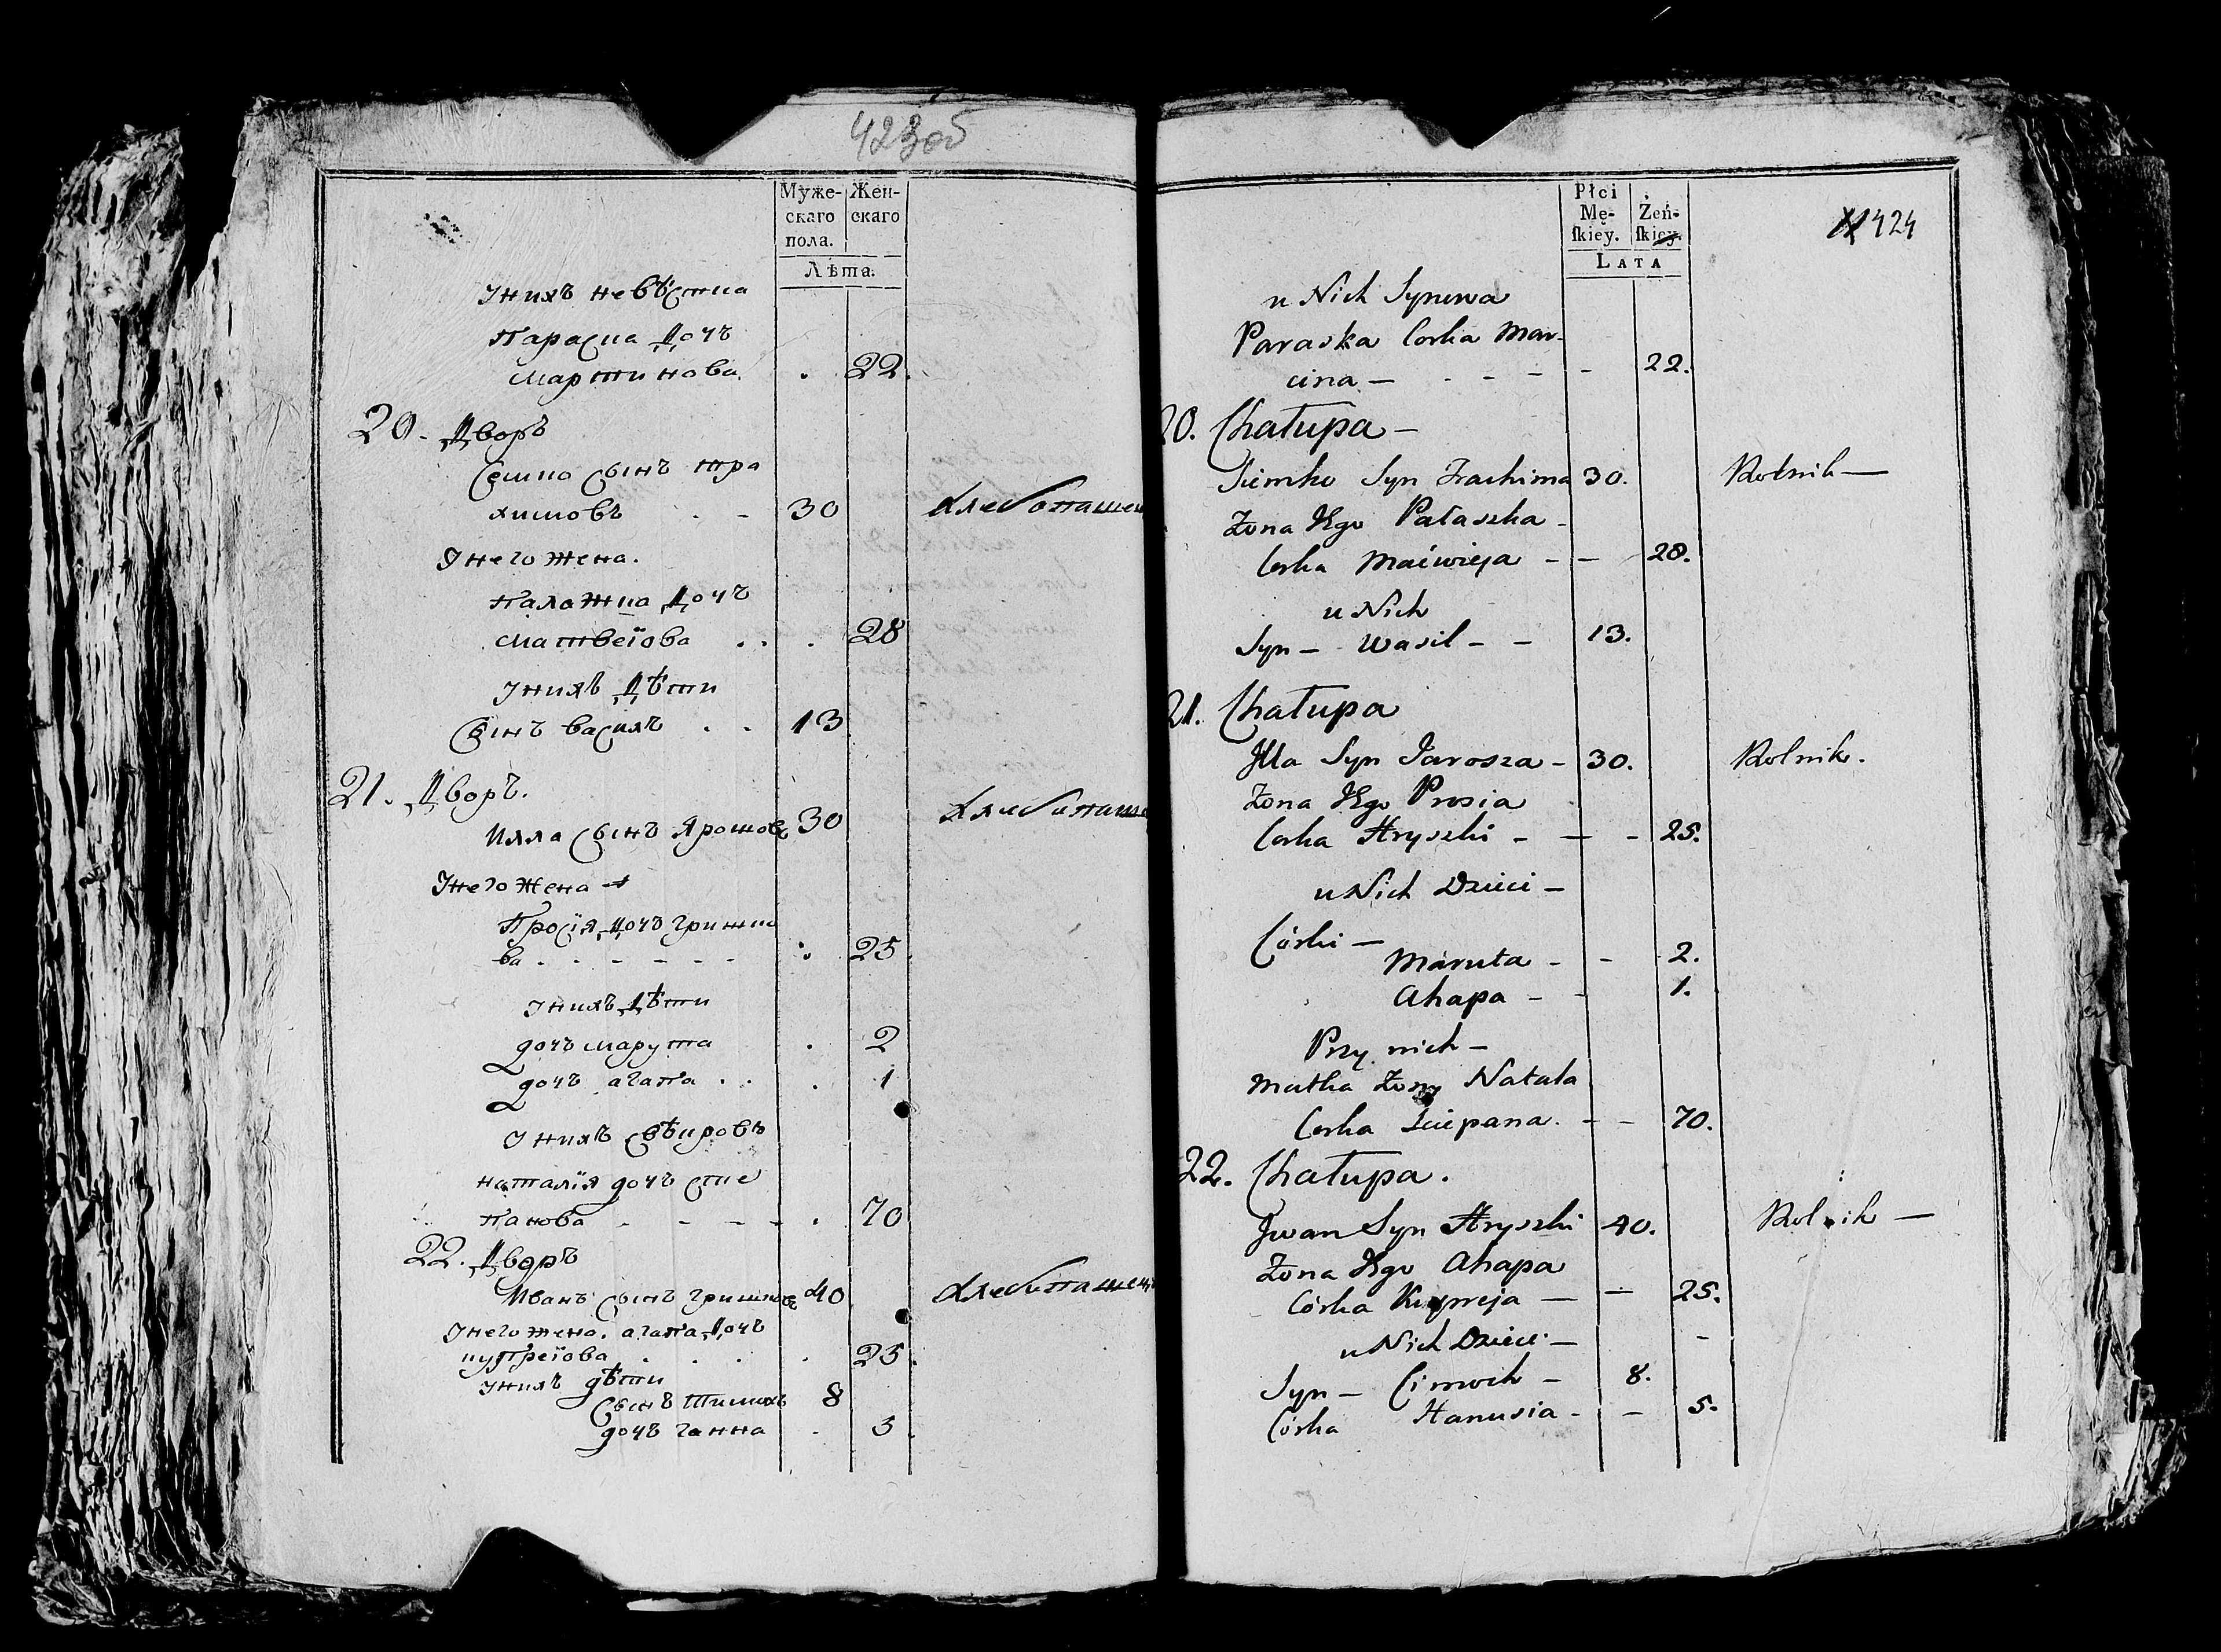 423об
Муже-
скаго
пола.
Жен-
скаго
Лѣта.
Унихъ невѣстка
Параска Дочь
Мартинова . 22.
20. Дворъ
Семко Сынъ тра
химовъ . - 30 Хлебопашец
Унего жена.
Палажка Дочь
Матвеіова . . . 28
Унихъ Дѣти
Сынъ василь . . 13
21. Дворъ.
Илла Сынъ Ярошовъ 30 Хлебопаше
Унего жена
Просія Дочь гришко
ва . . - - - - . 25
Унихъ Дѣти
дочь марута . 2
дочь агапа . . . 1
Унихъ свѣкровь
наталія дочь сте
панова - - - - . 70
22. Дворъ
Иванъ Сынъ гришковъ 40 Хлебопашец
Унего жена. агапа Дочь
купреіова . . . . 25.
Унихъ дѣти
Сынъ Тимохъ 8
дочь ганна . 5
Płci
Mę-
ſkiey.
Żeń-
ſkiey.
LATA
424
u Nich Synowa
Paraska Corka Mar-
cina - - - - - 22.
20. Chałupa -
Siemko Syn Trachima 30. Rolnik -
Zona Jego Pałaszka -
Corka Maćwieja - - 28.
u Nich
Syn - Wasil - - 13.
21. Chałupa
Jlla Syn Jarosza - 30. Rolnik.
Zona Jego Prosia
Corka Hryszki - - - 25.
u Nich Dzieci -
Córki -
Maruta - - 2.
Ahapa - - 1.
Przy nich -
Matka Zony Natala
Corka Sciepana. - - 70.
22. Chałupa.
Jwan Syn Hryszki 40. Rolnik -
Zona Jego Ahapa
Córka Kupreja - - 25.
u Nich Dzieci - -
Syn - Cimoch - 8.
Córka Hanusia - - 5.